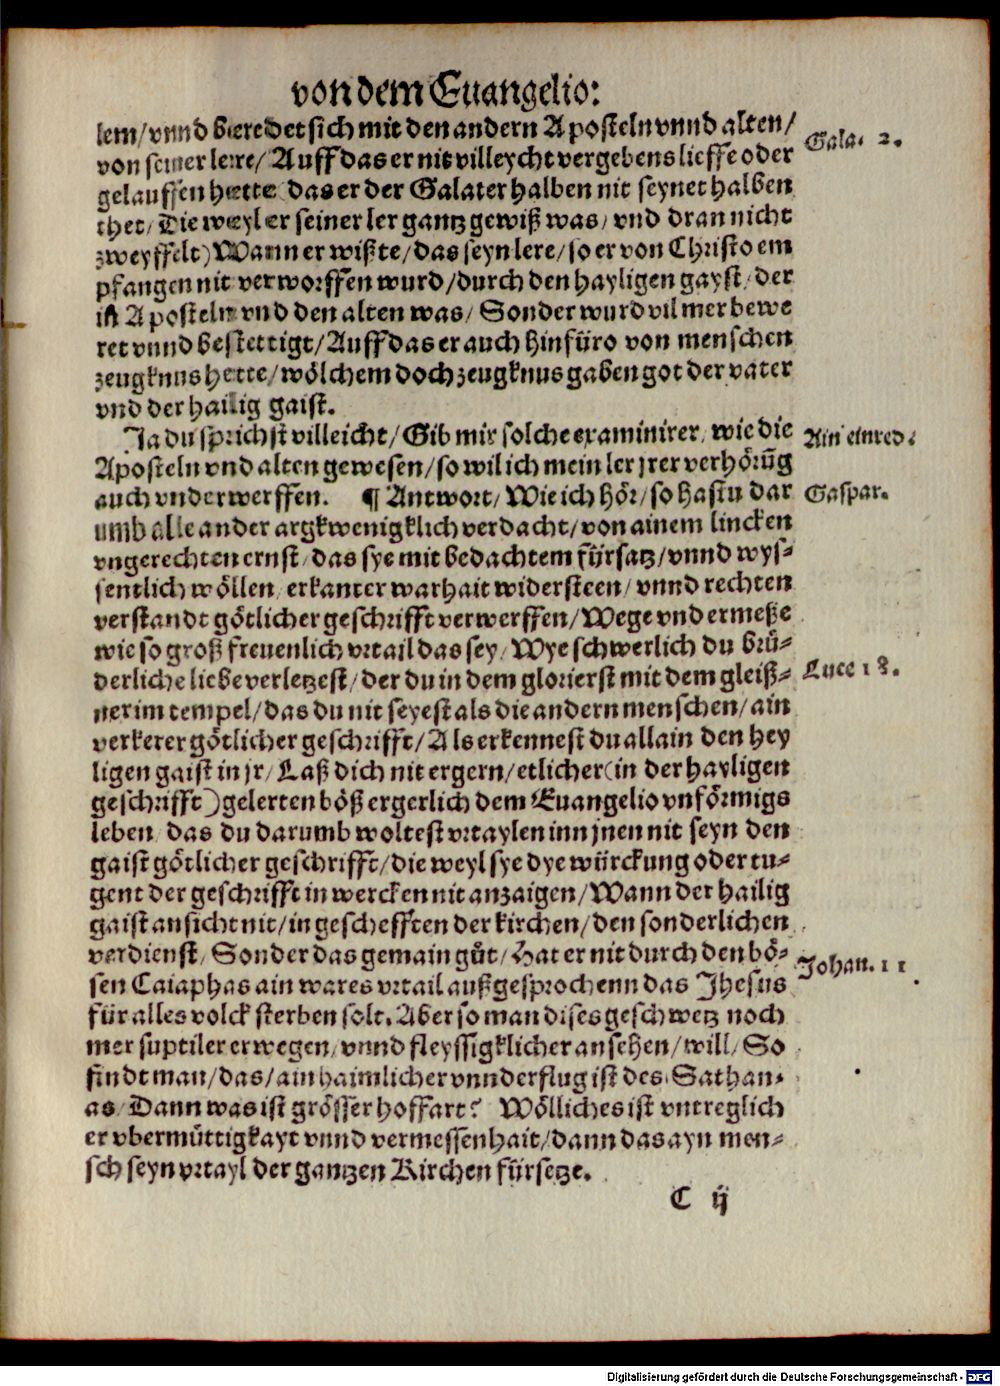 von dem Euangelio:
lem/ vnnd beredet sich mit den andern Aposteln vnnd alten/
Gala. 2.
von seiner lere/ Auff das er nit villeycht vergebens lieffe oder
gelauffen hette das er der Galater halben nit seynet halben
thet/ Die weyl er seiner ler gantz gewiß was/ vnd dran nicht
zweyffelt) Wann er wißte/ das seyn lere/ so er von Christo em
pfangen nit verworffen wurd/ durch den hayligen gayst/ der
in Aposteln vnd den alten was/ Sonder wurd vil mer bewe
ret vnnd bestettigt/ Auff das er auch hinfüro von menschen
zeugknus hette/ wölchem doch zeugknus gaben got der vater
vnd der hailig gaist.
Ja du sprichst villeicht/ Gib mir solche examinirer/ wie die
Ain einred.
Aposteln vnd alten gewesen/ so wil ich mein ler jrer verhörūg
auch vnderwerffen. ¶ Antwort/ Wie ich hör/ so hastu dar
Gaspar.
umb alle ander argkwenigklich verdacht/ von ainem lincken
vngerechten ernst/ das sye mit bedachtem fürsatz/ vnnd wys-
sentlich wöllen/ erkanter warhait widersteen/ vnnd rechten
verstandt götlicher geschrifft verwerffen/ Wege vnd ermeße
wie so groß freuenlich vrtail das sey/ Wye schwerlich du brü-
derliche liebe verletzest/ der du in dem glorierst mit dem gleiß-
Luce 18.
ner im tempel/ das du nit seyest als die andern menschen/ ain
verkerer götlicher geschrifft/ Als erkennest du allain den hey
ligen gaist in jr/ Laß dich nit ergern/ etlicher (in der hayligen
geschrifft) gelerten böß ergerlich dem Euangelio vnförmigs
leben/ das du darumb woltest vrtaylen inn jnen nit seyn den
gaist götlicher geschrifft/ die weyl sye dye würckung oder tu-
gent der geschrifft in wercken nit anzaigen/ Wann der hailig
gaist ansicht nit/ in geschefften der kirchen/ den sonderlichen
verdienst/ Sonder das gemain gůt/ Hat er nit durch den bö-
Johan. 11
sen Caiaphas ain wares vrtail außgesprochenn das Jhesus
für alles volck sterben solt. Aber so man dises geschwetz noch
mer suptiler erwegen/ vnnd fleyssigklicher ansehen/ will/ So
findt man/ das/ ain haimlicher vnnderflug ist des Sathan-
as/ Dann was ist grösser hoffart? Wölliches ist vntreglich
er vbermüttigkayt vnnd vermessenhait/ dann das ayn men-
sch seyn vrtayl der gantzen Kirchen fürsetze.
C ij
Digitalisierung gefördert durch die Deutsche Forschungsgemeinschaft - DFG